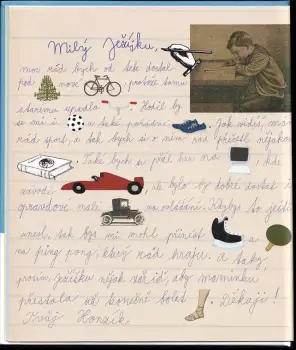 Milý Ježíšku,
moc rád bych od tebe dostal
pod nové protože tomu
starému upadla . Hodil by
se mi i a také pořádné . Jak vidíš, mám
rád sport, a tak bych si o něm rád přečetl nějakou
. Také bych si přál hru na , kde
závodí , ale bylo by dobré dostat i
opravdové malé na ovládání. Kdybys to ještě
unesl, tak bys mi mohl přinést a
na ping pong, který rád hraju. A taky
prosím, Ježíšku nějak zařiď, aby maminku
přestala už konečně bolet . Děkuji!
Tvůj Honzík